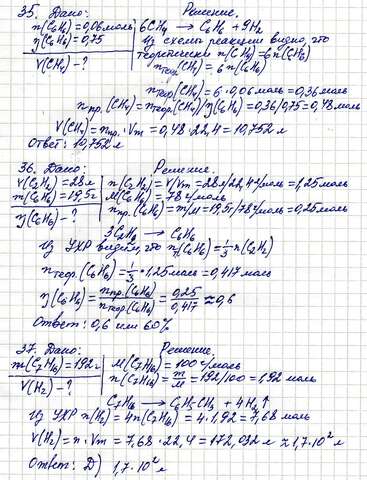 35. Дано: Решение.
n(C₆H₆)=0,06моль 6CH₄ → C₆H₆ + 9H₂
η(C₆H₆)=0,75 Из схемы реакции видно, что
теоретически n(CH₄)=6n(C₆H₆)
V(CH₄)-? nтеор.(CH₄)=6n(C₆H₆)
nтеор.(CH₄)=6·0,06моль=0,36моль
nпр.(CH₄)=nтеор.(CH₄)/η(C₆H₆)=0,36/0,75=0,48моль
V(CH₄)=nпр.·Vm=0,48·22,4=10,752л
Ответ: 10,752л
36. Дано: Решение:
V(C₂H₂)=28л n(C₂H₂)=V/Vm=28л/22,4л/моль=1,25моль
m(C₆H₆)=19,5г M(C₆H₆)=78г/моль
η(C₆H₆)-? nпр.(C₆H₆)=m/M=19,5г/78г/моль=0,25моль
3C₂H₂ → C₆H₆
Из УХР видим, что n(C₆H₆)=1/3n(C₂H₂)
nтеор.(C₆H₆)=1/3·1,25моль=0,417моль
η(C₆H₆)=nпр.(C₆H₆)/nтеор.(C₆H₆)=0,25/0,417≈0,6
Ответ: 0,6 или 60%
37. Дано: Решение
m(C₇H₁₆)=192г M(C₇H₁₆)=100г/моль
V(H₂)-? n(C₇H₁₆)=m/M=192/100=1,92 моль
C₇H₁₆ → C₆H₅CH₃ + 4H₂↑
Из УХР n(H₂)=4n(C₇H₁₆)=4·1,92=7,68 моль
V(H₂)=n·Vm=7,68·22,4=172,032л≈1,7·10²л
Ответ: Д) 1,7·10²л